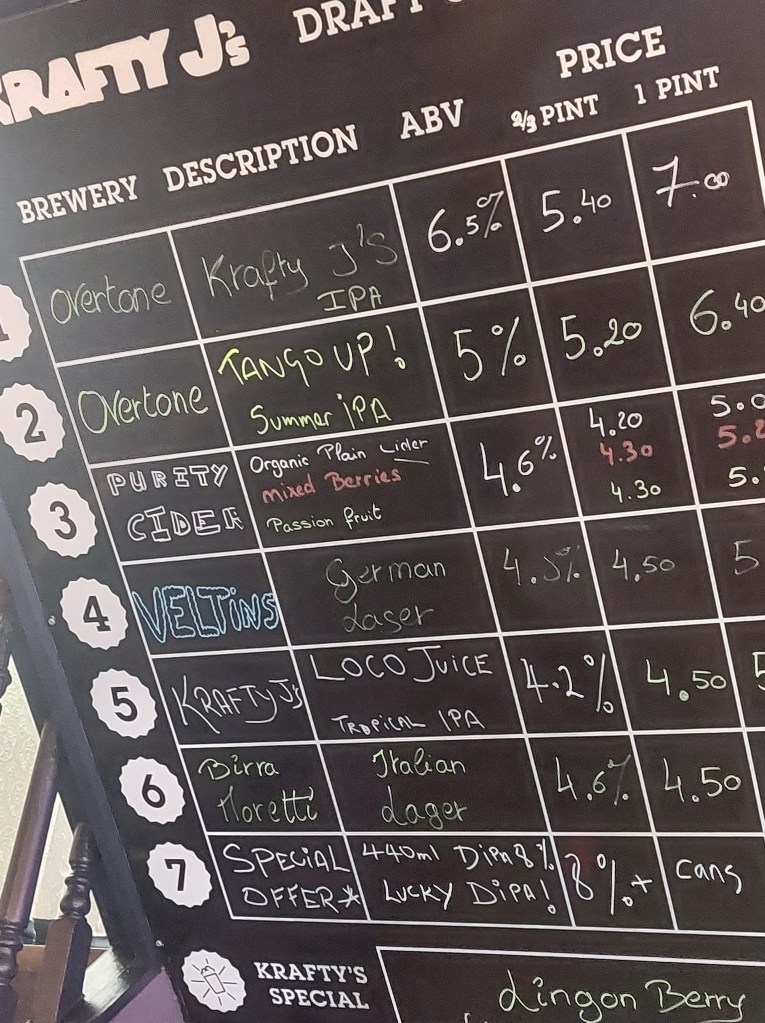 KRAFTY J's DRAFT
PRICE
BREWERY DESCRIPTION ABV 2/3 PINT 1 PINT
1 Overtone Krafty J's IPA 6.5% 5.40 7.00
2 Overtone TANGO UP! Summer iPA 5% 5.20 6.40
3 PURITY CIDER Organic Plain Cider 4.6% 4.20
mixed Berries 4.30
Passion fruit 4.30
4 VELTINS German Lager 4.5% 4.50
5 KRAFTY J's LOCO JUICE TROPICAL IPA 4.2% 4.50
6 Birra Moretti Italian Lager 4.6% 4.50
7 SPECIAL OFFER* 440ml DIPA 8% LUCKY DIPA! 8%+ cans
KRAFTY'S SPECIAL Lingon Berry